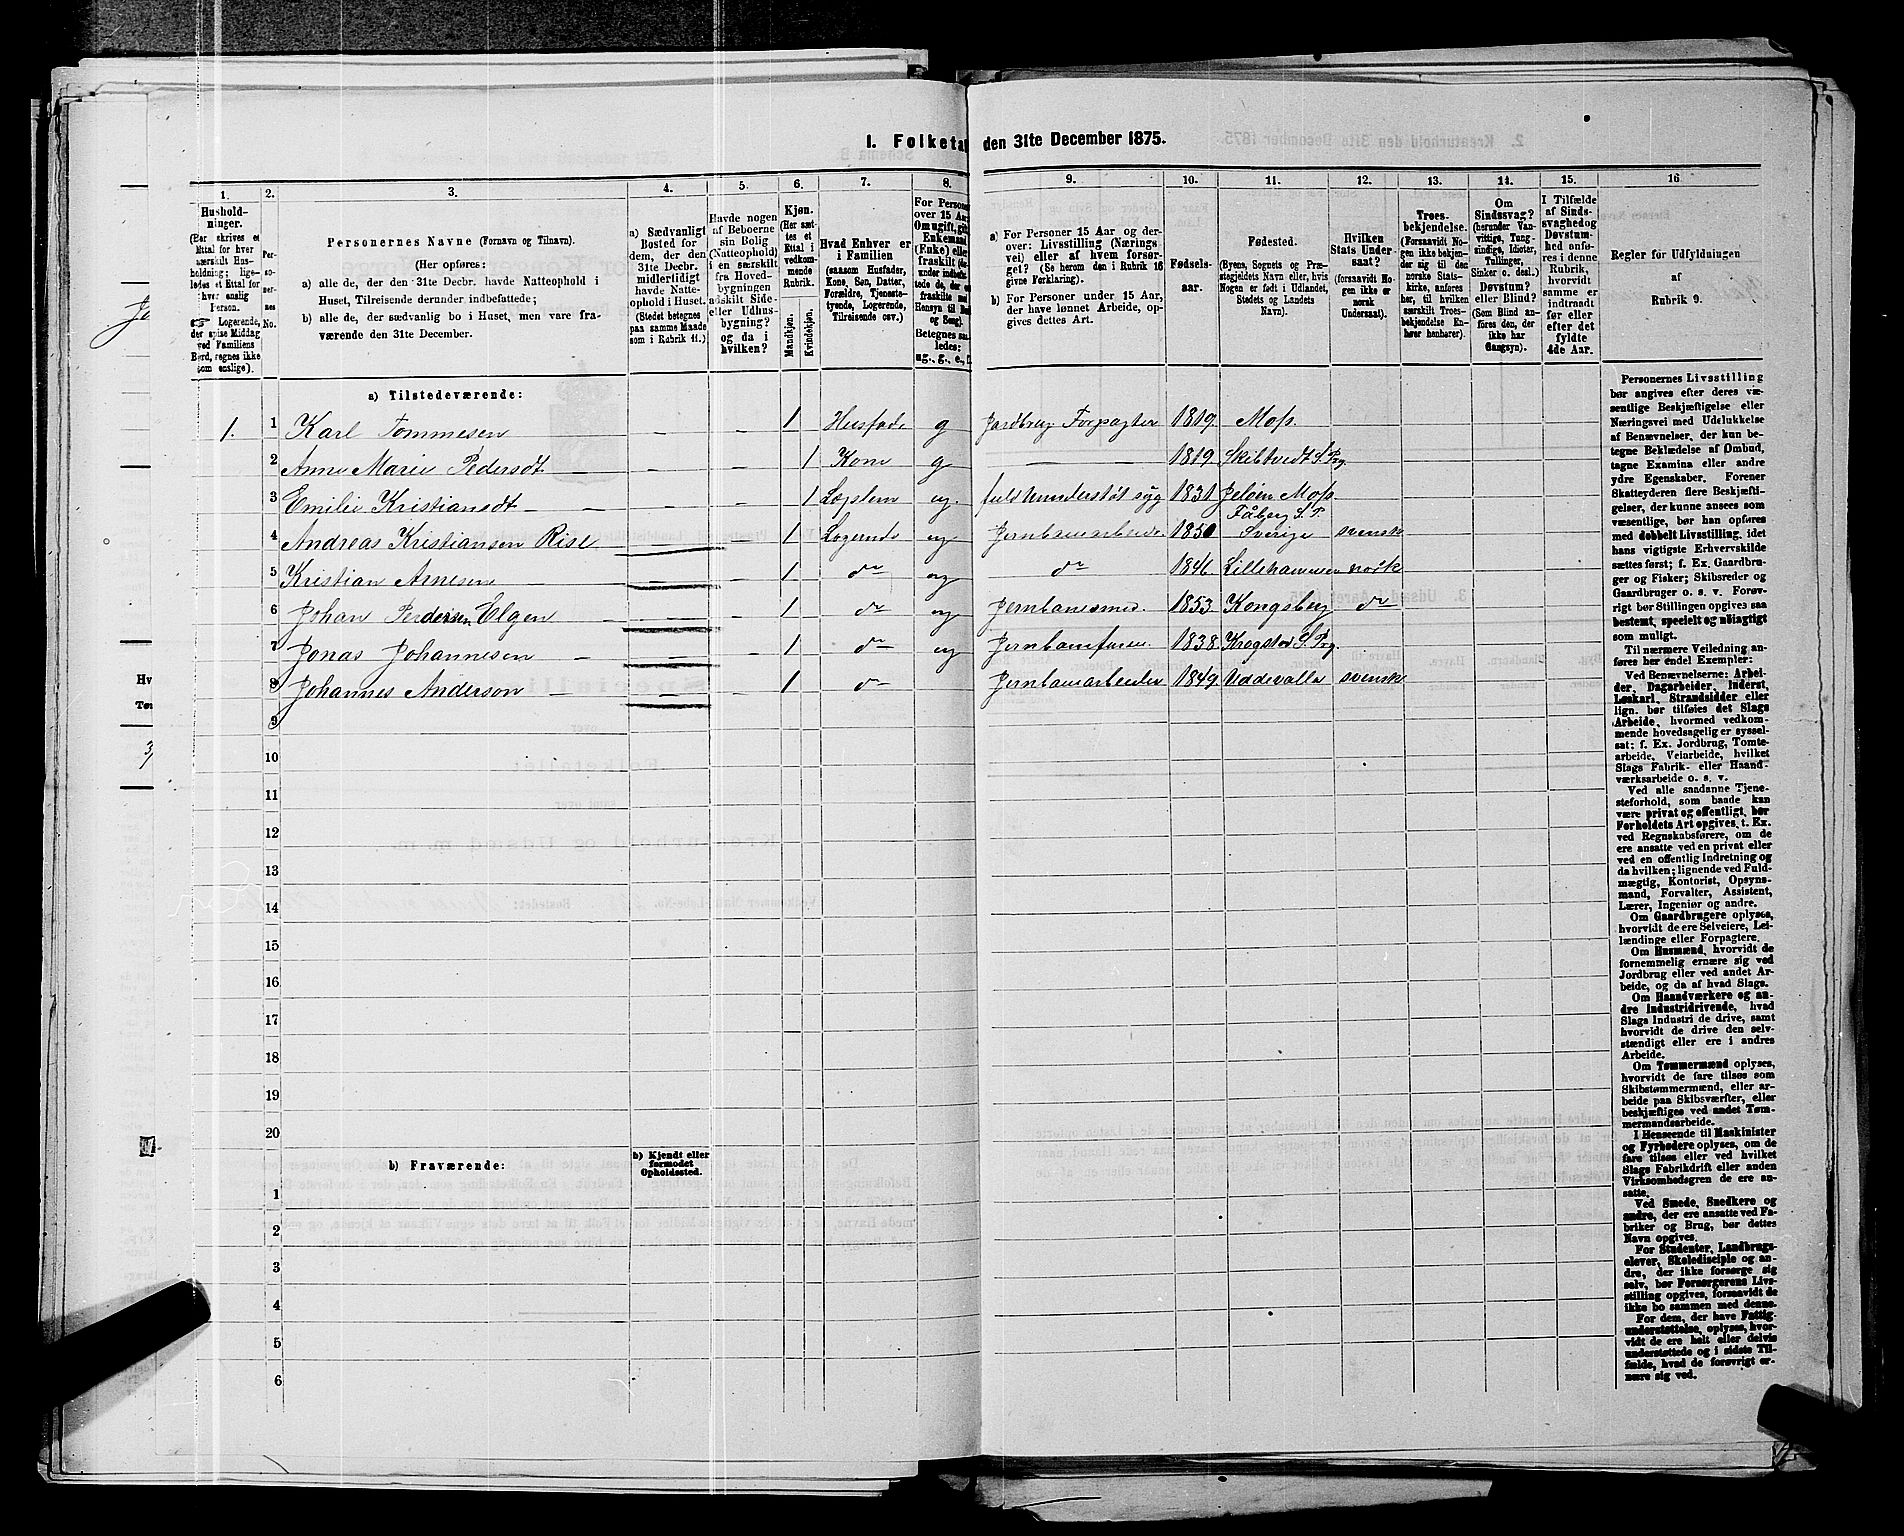 I. Folketal den 31te December 1875.
1. 2. 3. 4. 5. 6. 7. 8. 9. 10. 11. 12. 13. 14. 15. 16
Hushold-
ninger.
(Her skrives et
Ettal for hver
særskilt Hus-
holdning; lige-
ledes et Ettal for
hver enslig
Person.
☞ Logerende,
der spise Middag
ved Familiens
Bord, regnes ikke
som enslige).
Per-
so-
ner-
nes
No.
Personernes Navne (Fornavn og Tilnavn).
(Her opføres:
a) alle de, der den 31te Decbr. havde Natteophold i
Huset, Tilreisende derunder indbefattede;
b) alle de, der sædvanlig bo i Huset, men vare fra-
værende den 31te December.
a) Sædvanligt
Bosted for
dem, der den
31te Decbr.
midlerlidigt
havde Natte-
ophold i Huset.
(Stedet betegnes
paa samme Maade
som i Rubrik 11.)
Havde nogen
af Beboerne
sin Bolig
(Natteophold)
i en særskilt
fra Hoved-
bygningen
adskilt Side-
eller Udhus-
bygning?
og da i
hvilken?
Kjøn.
(Her sæt-
tes et
Ettal i
vedkom-
mende
Rubrik.
Mandkjøn.
Kvindekjøn.
Hvad Enhver er
i Familien
(saasom Husfader,
Kone, Søn, Datter,
Forældre, Tjeneste-
tyende, Logerende,
Tilreisende osv.)
For Personer
over 15 Aar,
Om ugift, gift,
Enkemand
(Enke) eller
fraskilt
Betegnes saa-
ledes:
ug., g., e., f.
a) For Personer 15 Aar og der-
over: Livsstilling (Nærings-
vei) eller af hvem forsør-
get? (Se herom den i Rubrik 16
givne Forklaring).
b) For Personer under 15 Aar,
der have lønnet Arbeide, op-
gives dettes Art.
Fødsels-
aar.
Fødested.
(Byens, Sognets og Præ-
stegjeldets Navn eller, hvis
Nogen er født i Udlandet,
Stedets og Landets
Navn).
Hvilken
Stats Under-
saat?
(forsaavidt No-
gen ikke er
norsk
Undersaat).
Troes-
bekjendelse.
(Forsaavidt No-
gen ikke bekjen-
der sig til den
norske Stats-
kirke, anføres
her, til hvilken
særskilt Troes-
bekjendelse En-
hver henhører).
Om
Sindssvag?
(herunder Van-
vittige, Tung-
sindige, Idioter,
Tullinger,
Sinker o. desl.)
Døvstum?
eller Blind?
(Som Blind an-
føres den, der
ikke har
Gangsyn).
I Tilfælde
af Sinds-
svaghed og
Døvstum-
het anfø-
res i denne
Rubrik,
hvorvidt
samme er
indtraadt
før eller
efter det
fyldte
4de Aar.
Regler for Udfyldningen
af
Rubrik 9.
a) Tilstedeværende:
1. 1 Karl Tommesen — — 1 Husfade g Jordbrug Forpagter 1819 Moss.
2 Anne Marie Pedersdt — — 1 Kone g — — 1819 Skibtvedt S. Prg.
3 Emilie Kristiansdt — — — 1 Løslem ug. fuldt understøt syg 1831 Jeløen Moss
Fåberg S. P.
4 Andreas Kristiansen Rise — — 1 Logernde ug Jernbanearbeide. 1850 Sverige svensk
5 Kristian Arnesen — — — 1 do ug do 1846 Lillehammer norsk
6 Johan Pedersen Elgen — — — 1 do ug Jernbanesmed. 1853 Kongsberg do
7 Jonas Johannesen — — — 1 do ug 1838 Kragstad S. Prg.
8 Johannes Anderson — — — 1 do Jernbanearbeider 1849 Uddevalla svensk
9
10
11
12
13
14
15
16
17
18
19
20
b) Fraværende:
b) Kjendt eller
formodet
Opholdssted.
1
2
3
4
5
6
Personernes Livsstilling
bør angives efter deres væ-
sentlige Beskjæftigelse eller
Næringsvei med Udelukkelse
af Benævnelser, der kun be-
tegne Beklædelse af Ombud,
tagne Examina eller andre
ydre Egenskaber. Forener
Skatteyderen flere Beskjæfti-
gelser, der kunne ansees som
væsentlige, bør han opføres
med dobbelt Livsstilling, idet
hans vigtigste Erhvervskilde
sættes først; f. Ex. Gaardbru-
ger og Fisker; Skibsreder og
Gaardbruger o. s. v. Forøv-
rigt bør Stillingen opgives saa
bestemt, specielt og nøiagtigt
som muligt.
Til nærmere Veiledning an-
føres her endel Exempler:
Ved Benævnelserne: Arbei-
der, Dagarbeider, Inderst,
Løskarl, Strandsidder eller
lign. bør tilføies det Slags
Arbeide, hvormed vedkom-
mende hovedsagelig er syssel-
sat; f. Ex. Jordbrug, Tomte-
arbeide, Veiarbeide, hvilket
Slags Fabrik- eller Haand-
værksarbeide o. s. v.
Ved alle saadanne Tjene-
steforhold, som baade kan
være privat og offentligt, bør
Forholdets Art opgives, t. Ex.
ved Regnskabsførere, om de
ere ansatte ved en privat eller
ved en offentlig Indretning og
da hvilken; lignende ved Fuld-
mægtig, Kontorist, Opsyns-
mand, Forvalter, Assistent,
Lærer, Ingeniør og andre.
Om Gaardbrugere oplyses,
hvorvidt de ere Selveiere, Lei-
lændinge eller Forpagtere.
Om Husmænd, hvorvidt de
fornemmelig ernære sig ved
Jordbrug eller ved andet Ar-
beide, og da af hvad Slags.
Om Haandværkere og an-
dre Industridrivende, hvad
Slags Industri de drive, samt
hvorvidt de drive den selv-
stændigt eller ere i andres
Arbeide.
Om Tømmermænd oplyses,
hvorvidt de fare tilsøs som
Skibstømmermænd, eller ar-
beide paa Skibsværfter, eller
beskjæftiges ved andet Tøm-
mermandsarbeide.
I Henseende til Maskinister
og Fyrbødere oplyses, om de
fare tilsøs eller ved hvilket
Slags Fabrikdrift eller anden
Virksomhedsgren de ere an-
satte.
Ved Smede, Snedkere og
andre, der ere ansatte ved Fa-
briker og Brug, bør dettes
Navn opgives.
For Studenter, Landbrugs-
elever, Skoledisciple og an-
dre, der ikke forsørge sig
selv, bør Forsørgerens Livs-
stilling opgives, forsaavidt de
ikke bo sammen med denne.
For dem, der have Fattig-
understøttelse, oplyses, hvor-
vidt de ere helt eller delvis
understøttede og i sidste Til-
fælde, hvad de forøvrigt er-
nære sig ved.